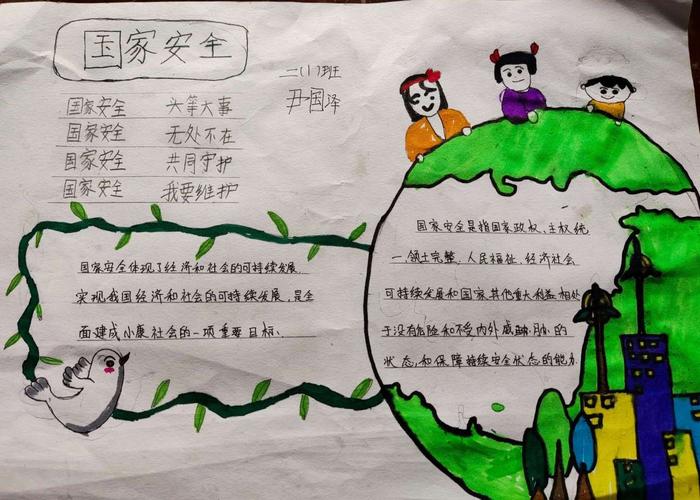 国家安全
二(1)班
尹国泽
国家安全 头等大事
国家安全 无处不在
国家安全 共同守护
国家安全 我要维护
国家安全体现了经济和社会的可持续发展.
实现我国经济和社会的可持续发展,是全
面建成小康社会的一项重要目标.
国家安全是指国家政权、主权、统
一、领土完整、人民福祉、经济社会
可持续发展和国家其他重大利益相对
于没有危险和不受内外威胁 的
状态,和保障持续安全状态的能力.